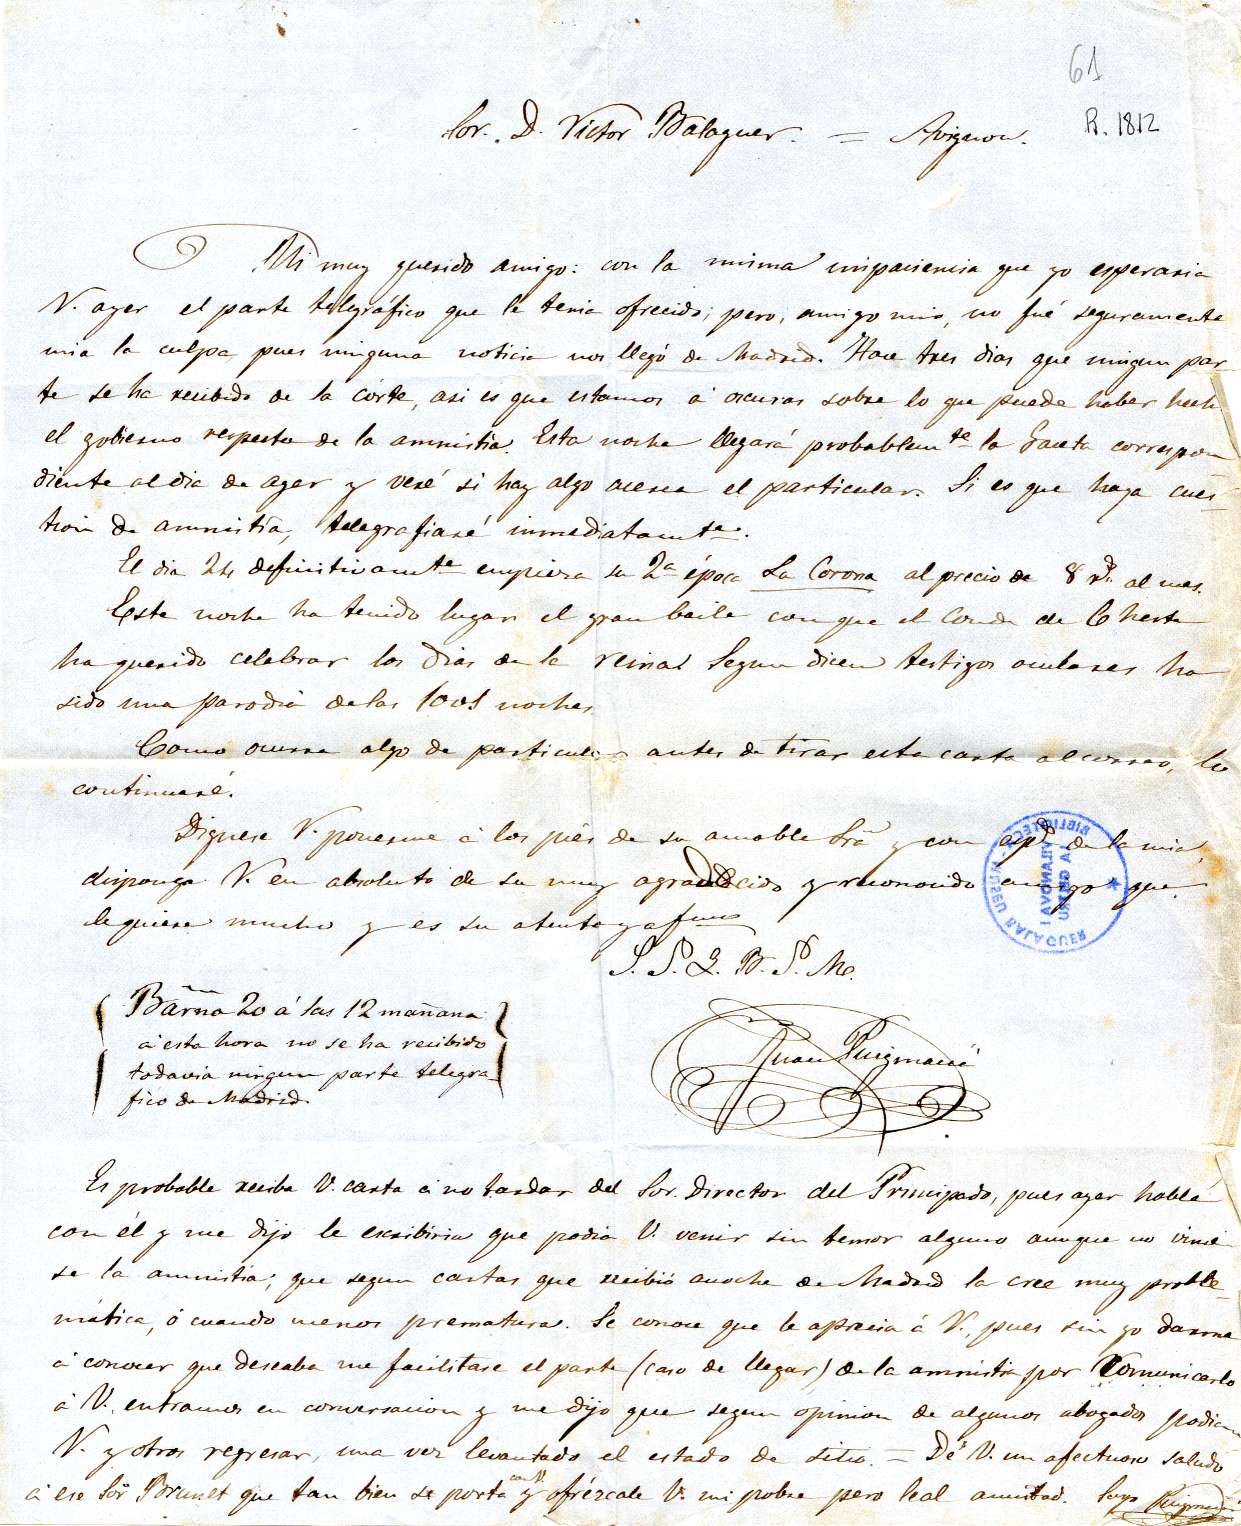 61
R. 1812
Sor. D. Victor Balaguer. = Avignon.
Mi muy querido amigo: con la misma impaciencia que yo esperaria
V. ayer el parte telegráfico que le tenia ofrecido; pero, amigo mio, no fué seguramente
mia la culpa, pues ninguna noticia nos llegó de Madrid. Hace tres dias que ningun par
te se ha recibido de la córte, asi es que estamos á oscuras sobre lo que puede haber hech
el gobierno respecto de la amnistia. Esta noche llegará probablemte la Gaceta correspon
diente al dia de ayer y veré si hay algo acerca el particular. Si es que haya cues-
tion de amnistía, telegrafiaré inmediatamte.
El dia 24 definitivamte empieza su 2a época La Corona al precio de 8 rs. al mes.
Esta noche ha tenido lugar el gran baile con que el Conde de Cheste
ha querido celebrar los dias de la reina. Segun dicen testigos oculares ha
sido una parodia de las 1001 noches.
Como ocurra algo de particular antes de tirar esta carta al correo, lo
continuaré.
Dignese V. ponerme á los piés de su amable Sra y con espl de la mia,
disponga V. en absoluto de su muy agradecido y reconocido amigo que
le quiere mucho y es su atento y afmo
S. S. Q. B. S. M.
Juan Puigmacià
( Barna 20 á las 12 mañana )
á esta hora no se ha recibido
todavia ningun parte telegra-
fico de Madrid.
BIBLIOTECA - MUSEU BALAGUER
VILANOVA I
LA GELTRU
Es probable reciba V. carta á no tardar del Sor. director del Principado, pues ayer hablé
con él y me dijo le escribiria que podia V. venir sin temor alguno aunque no vinie
se la amnistía; que segun cartas que recibió anoche de Madrid la cree muy proble-
mática, ó cuando menos prematura. Se conoce que le aprecia á V., pues sin yo darme
á conocer que deseaba me facilitase el parte (caso de llegar) de la amnistia por comunicarlo
á V., entramos en conversacion y me dijo que segun opinion de algunos abogados podian
V. y otros regresar, una vez levantado el estado de sitio. = Dé V. un afectuoso saludo
á ese Sor Brunet que tan bien se porta con V. y ofrézcale V. mi pobre pero leal amistad. Suyo